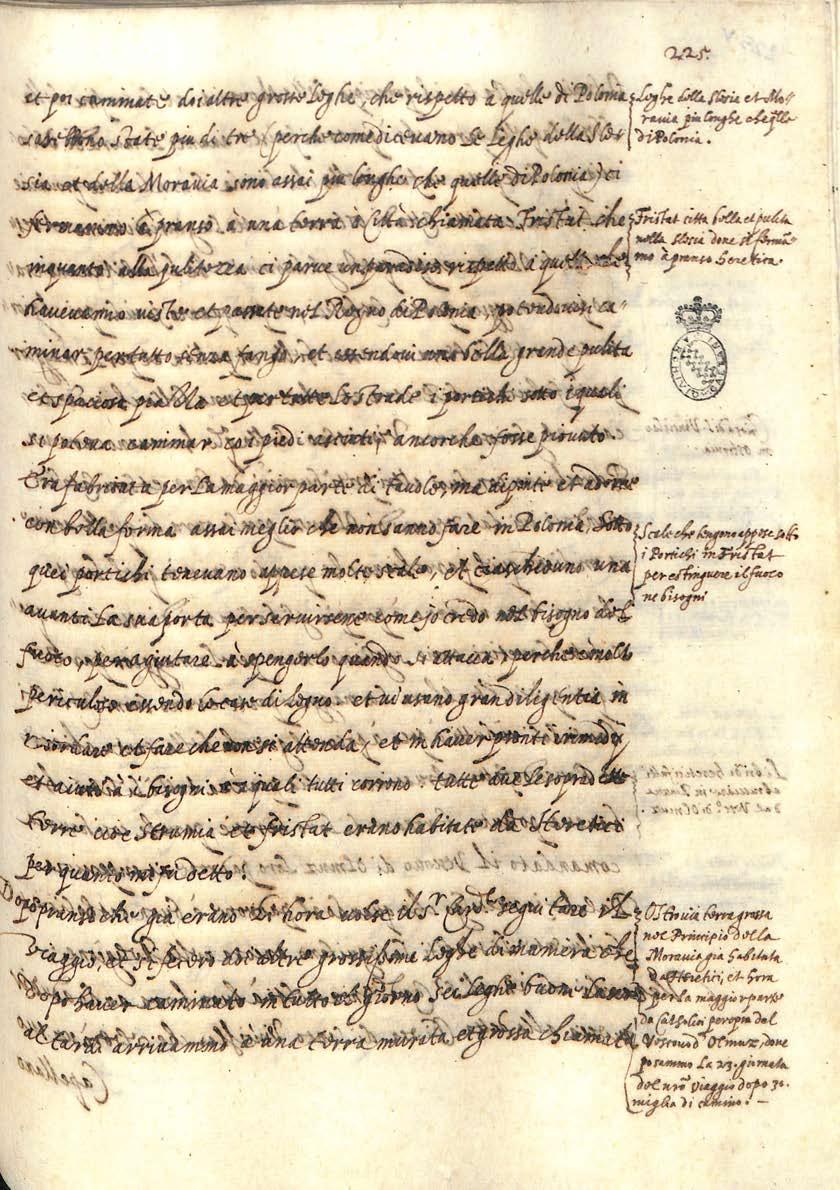 225.
et poi caminate doi altre grosse leghe, che rispetto à quelle di Polonia
state piu di tre (perche come dicevano le leghe della Sle-
sia et della Moravia sono assai piu longhe che quelle di Polonia) ci
fermammo à pranso à una terra ò Città chiamata Fristat che
inquanto alla pulitezza ci parve un paradiso rispetto à quelle che
havevamo viste et passate nel Regno di Polonia, potendovisi ca-
minar per tutto senza fango, et essendovi una bella grande pulita
et spaciosa piazza et per tutte le strade i portichi sotto i quali
si poteva caminar co i piedi asciuti, ancorche fosse piovuto.
Era fabricata per la maggior parte di tavole, ma dipinte et adorne
con bella forma assai meglio che non sanno fare in Polonia, sotto
quei portichi tenevano appese molte scale, et ciascheduno una
avanti la sua porta per servirsene come jo credo nel bisogno del
fuoco, per agiutare à spengerlo quando si attacca, perche è molto
periculoso essendo le case di legno. et vi usano gran diligentia in
et fare che non si attenda, et in haver pronti i rimedij
et aiuto à i bisogni à quali tutti corrono. tutte due le sopradette
terre cioe Strumia et Fristat erano habitate da Heretici
per quanto mi fu detto.
Dopo pranso che già erano hora volse il S.r Card.le seguitare il
viaggio, et si fecero doi altre grossissime leghe di maniera che
dopo haver caminato in tutto il giorno sei leghe buone la sera
al tardi arrivammo à una terra murata et grossa chiamata
Leghe della Slesia et Mo-
ravia piu longhe che q.lle
di Polonia.
Fristat citta bella et pulita
nella Slesia dove si ferma-
mo à pranso heretica
Scale che tengono appese sotto
i Portichi in Fristat
per estinguere il fuoco
ne bisogni
Ostrovia terra grossa
nel Principio della
Moravia già habitata
da Heretici, et hora
per la maggior parte
da Catholici per opra del
Vescovo d'Olmuz, dove
posammo la 23. giornata
del nro viaggio dopo 30.
miglia di camino. –